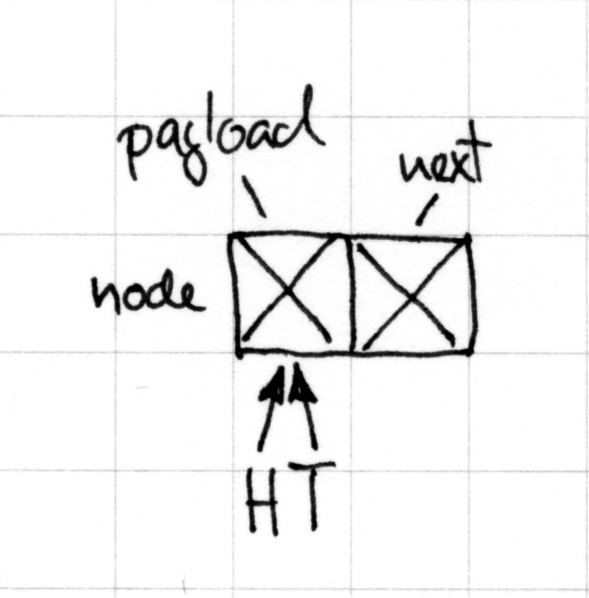 payload
next
node
H T